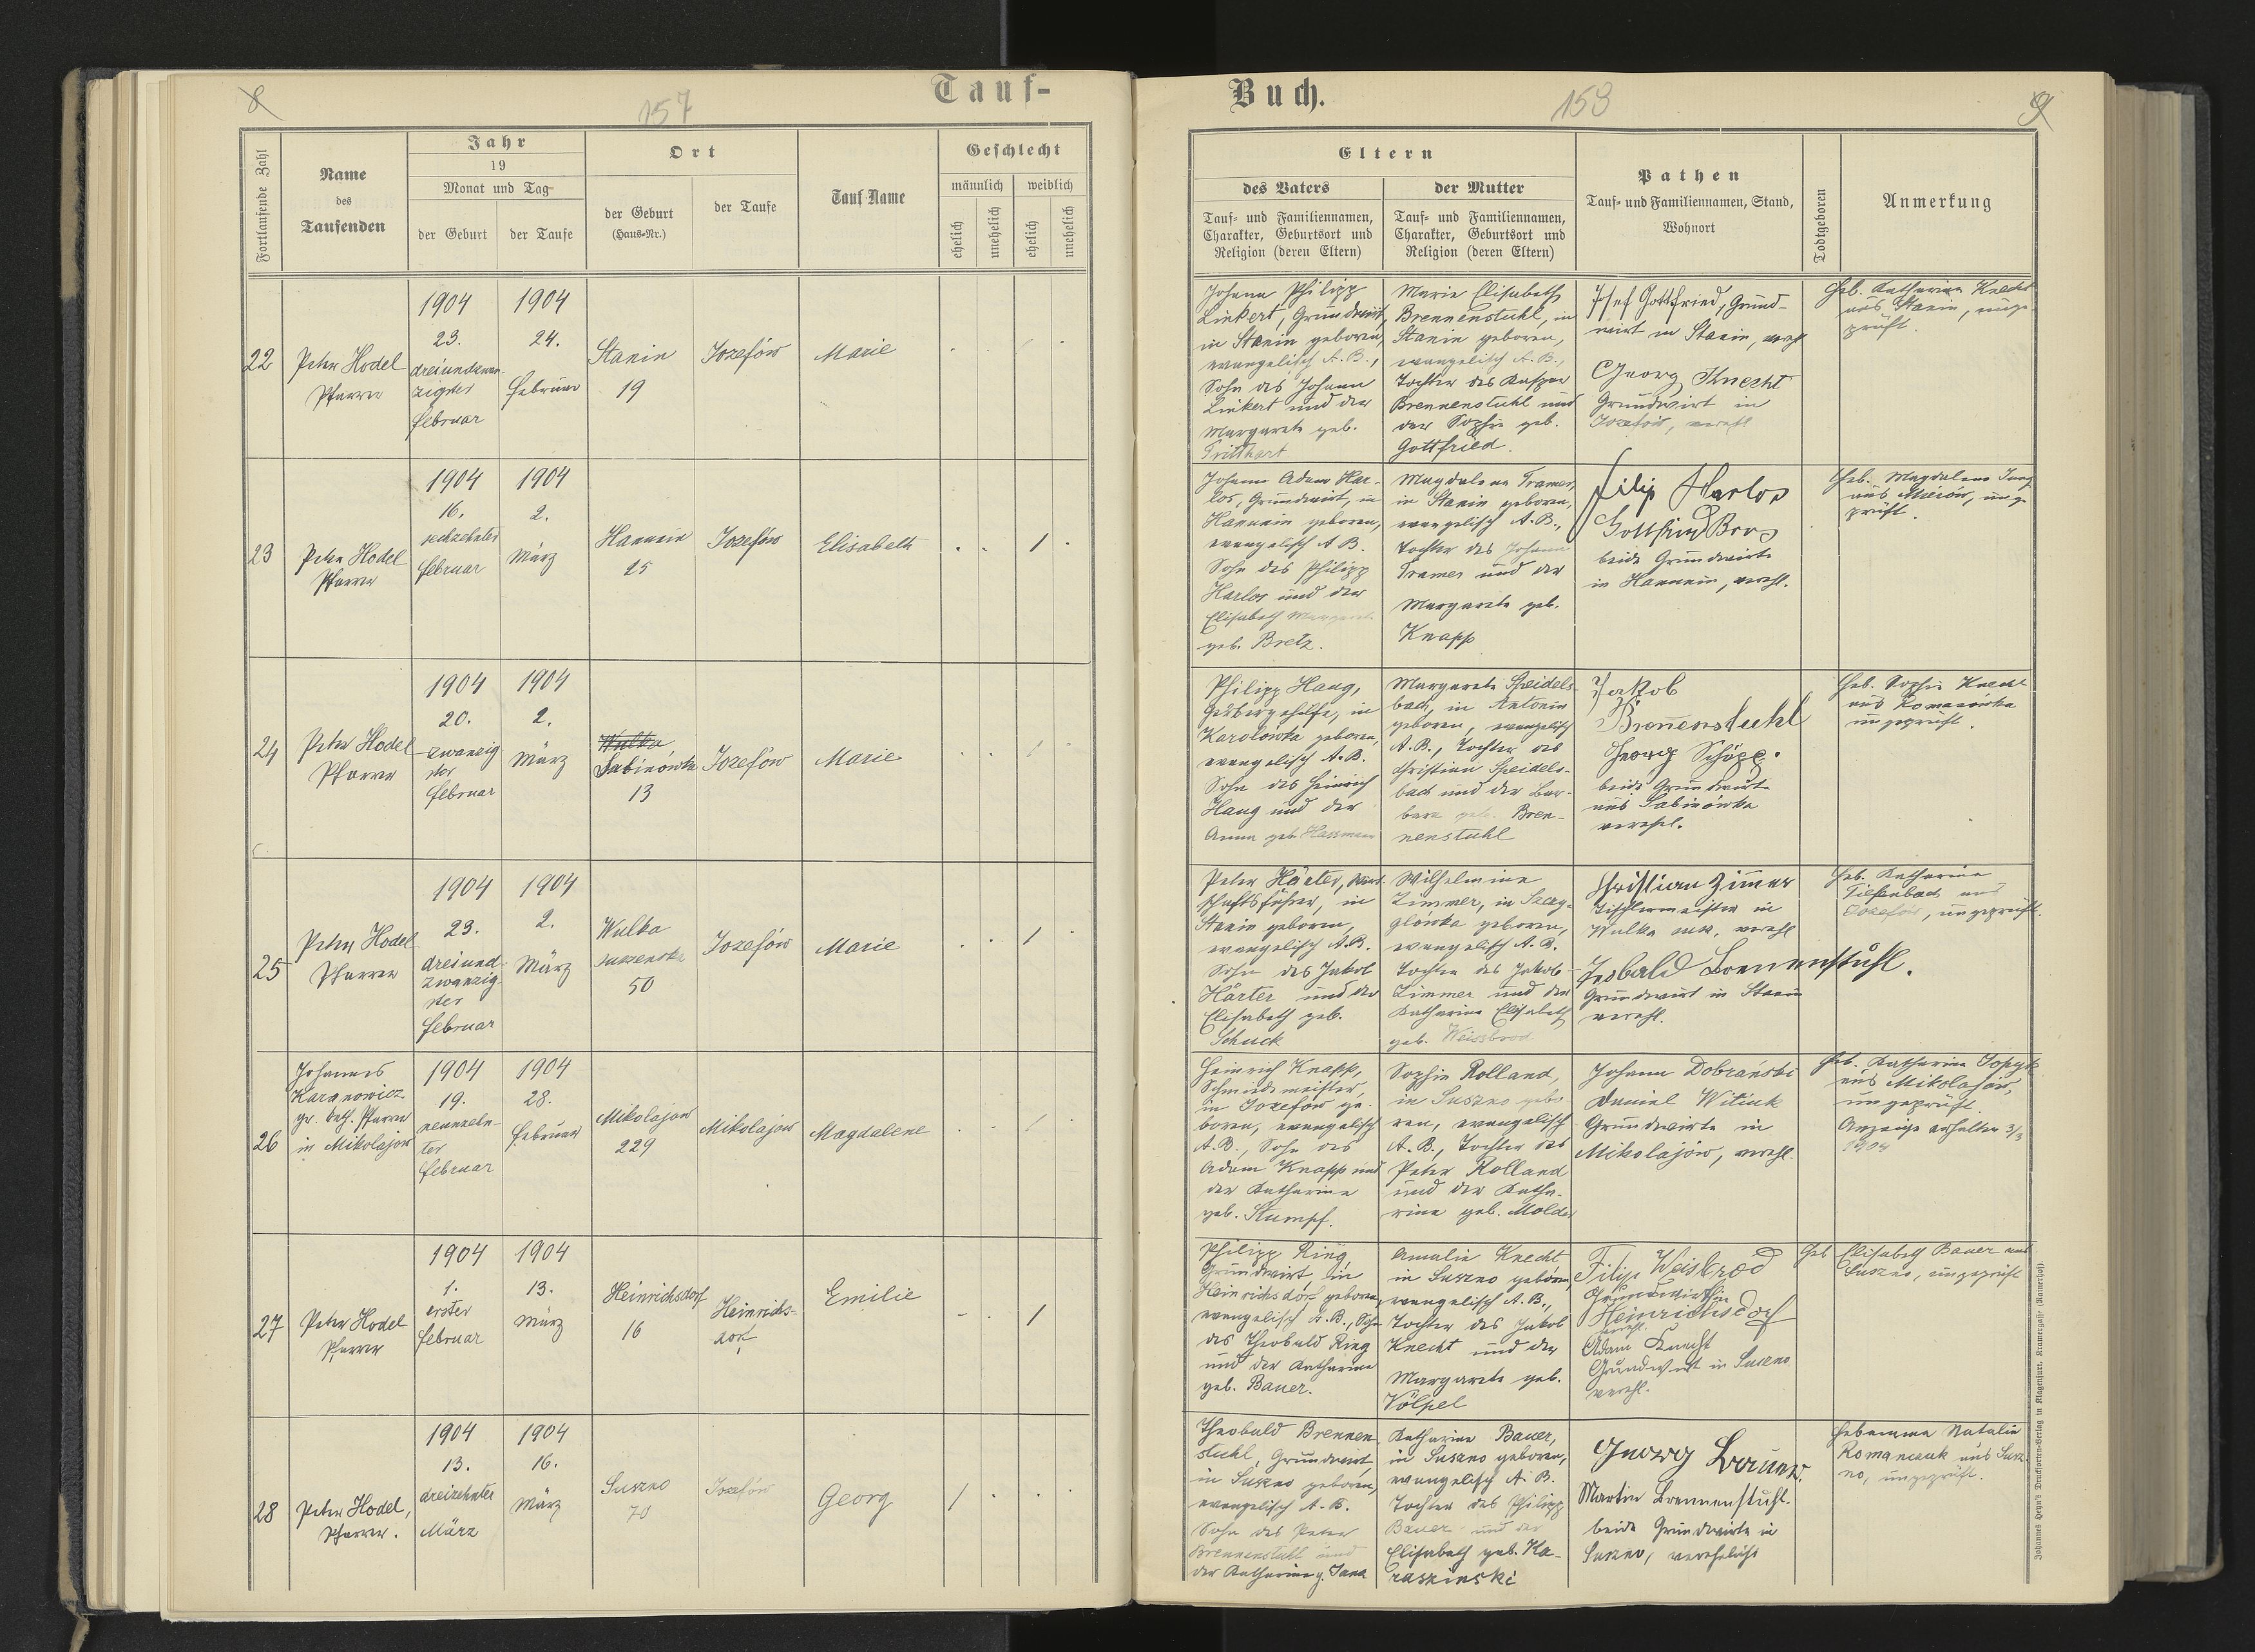 8
157
Tauf-
Fortlaufende Zahl
Name
des
Taufenden
Jahr
19
Monat und Tag
der Geburt
der Taufe
Ort
der Geburt
(Haus-Nr.)
der Taufe
Tauf-Name
Geschlecht
männlich
weiblich
ehelich
unehelich
ehelich
unehelich
22
Peter Hodel
Pfarrer
1904
23.
dreiundzwan-
zigster
Februar
1904
24.
Februar
Stanin
19
Józefów
Marie
23
Peter Hodel
Pfarrer
1904
16.
sechzehnter
Februar
1904
2.
März
Hanunin
25
Józefów
Elisabeth
24
Peter Hodel
Pfarrer
1904
20.
zwanzig-
ster
Februar
1904
2.
März
Wulka
Sabinówka
13
Józefów
Marie
25
Peter Hodel
Pfarrer
1904
23.
dreiund-
zwanzig-
ster
Februar
1904
2.
März
Wulka
suszenska
50
Józefów
Marie
26
Johannes
Karanowicz
gr. kath. Pfarrer
in Mikolajow
1904
19.
neunzehn-
ter
Februar
1904
28.
Februar
Mikolajow
229
Mikolajow
Magdalene
27
Peter Hodel
Pfarrer
1904
1.
erster
Februar
1904
13.
März
Heinrichsdorf
16
Heinrichs-
dorf
Emilie
28
Peter Hodel,
Pfarrer.
1904
13.
dreizehnter
März
1904
16.
März
Suszno
70
Józefów
Georg
Buch.
153
9
Eltern
des Vaters
Tauf- und Familiennamen,
Charakter, Geburtsort und
Religion (deren Eltern)
der Mutter
Tauf- und Familiennamen,
Charakter, Geburtsort und
Religion (deren Eltern)
Pathen
Tauf- und Familiennamen, Stand,
Wohnort
Todtgeboren
Anmerkung
Johann Philipp
Linkert, Grundwirt,
in Stanin geboren,
evangelisch A. B.,
Sohn des Johann
Linkert und der
Margarete geb.
Marie Elisabeth
Brennenstuhl, in
Stanin geboren,
evangelisch A. B.,
Tochter des Kaspar
Brennenstuhl und
der Sophie geb.
Gottfried.
Josef Gottfried, Grund-
wirt in Stanin, verehl
Georg Knecht
Grundwirt in
Józefów, verehl
Heb. Katharina Knecht
aus Stanin, unge-
prüft.
Johann Adam Har-
los, Grundwirt, in
Hanunin geboren,
evangelisch A B.
Sohn des Philipp
Harlos und der
Elisabeth Margarete
geb. Bretz.
Magdalena Tramer,
in Stanin geboren,
evangelisch A. B.,
Tochter des Johann
Tramer und der
Margarete geb.
Knapp
Filip Harlos
beide Grundwirte
in Hanunin, verehl.
Heb. Magdalena Jung
prüft.
Philipp Haug,
in
Karolówka geboren,
evangelisch A. B.
Sohn des Heinrich
Haug und der
Anna geb. Hassmann
Margarete Speidels-
bach, in Antonin
geboren, evangelisch
A. B., Tochter des
Christian Speidels-
bach und der Bar-
bara geb. Bren-
nenstuhl
Jakob
Brennenstuhl
Georg Schöpp.
beide Grundwirte
aus Sabinówka
verehel.
Heb. Sophie Knecht
aus Romanówka
ungeprüft.
Peter Härter, Wirt-
schaftsführer, in
Stanin geboren,
evangelisch A. B.
Sohn des Jakob
Härter und der
Elisabeth geb.
Schuck
Wilhelmine
Zimmer, in
geboren,
evangelisch A. B.
Tochter des Jakob
Zimmer und der
Katharina Elisabeth
geb. Weissbrod
Christian Zimmer
Tischlermeister in
Wulka sus., verehl
Brennenstuhl.
Grundwirt in Stanin
verehl.
Heb. Katharina
Tiefenbach aus
Józefów, ungeprüft.
Heinrich Knapp,
Schmiedemeister,
in Józefów ge-
boren, evangelisch
A. B., Sohn des
Adam Knapp und
der Katharina
geb. Stumpf.
Sophie Rolland,
in Suszno gebo
ren, evangelisch
A. B., Tochter des
Peter Rolland
und der Katha-
rina geb. Molder
Johann Dobrański
Daniel Witiuk
Grundwirte in
Mikolajów, verehl.
Heb. Katharina
aus Mikolajów,
ungeprüft.
Anzeige erhalten 3/3
1904
Philipp Ring
Grundwirt, in
Heinrichsdorf geboren,
evangelisch A. B., Sohn
des Theobald Ring
und der Katharina
geb. Bauer.
Amalie Knecht
in Suszno geboren,
evangelisch A. B.,
Tochter des Jakob
Knecht und der
Margarete geb.
Völpel
Filip Weisbrod
Grundwirth in
Heinrichsdorf
verehl.
Adam Knecht
Grundwirt in Suszno
verehl.
Heb. Elisabeth Bauer aus
Suszno, ungeprüft
Theobald Brennen-
stuhl, Grundwirt
in Suszno geboren,
evangelisch A. B.
Sohn des Peter
Brennenstuhl und
der Katharina g. Jana
Katharina Bauer,
in Suszno geboren,
evangelisch A. B.
Tochter des Philipp
Bauer und der
Elisabeth geb. Ka-
raszinski
Georg Bauer.
Martin Brennenstuhl.
beide Grundwirte in
Suszno, verehelicht
Hebamme Natalie
Romanczuk aus Susz-
no, ungeprüft.
Johannes Heyn's Drucksorten-Verlag in Klagenfurt, Kramergasse (Kainerhof).